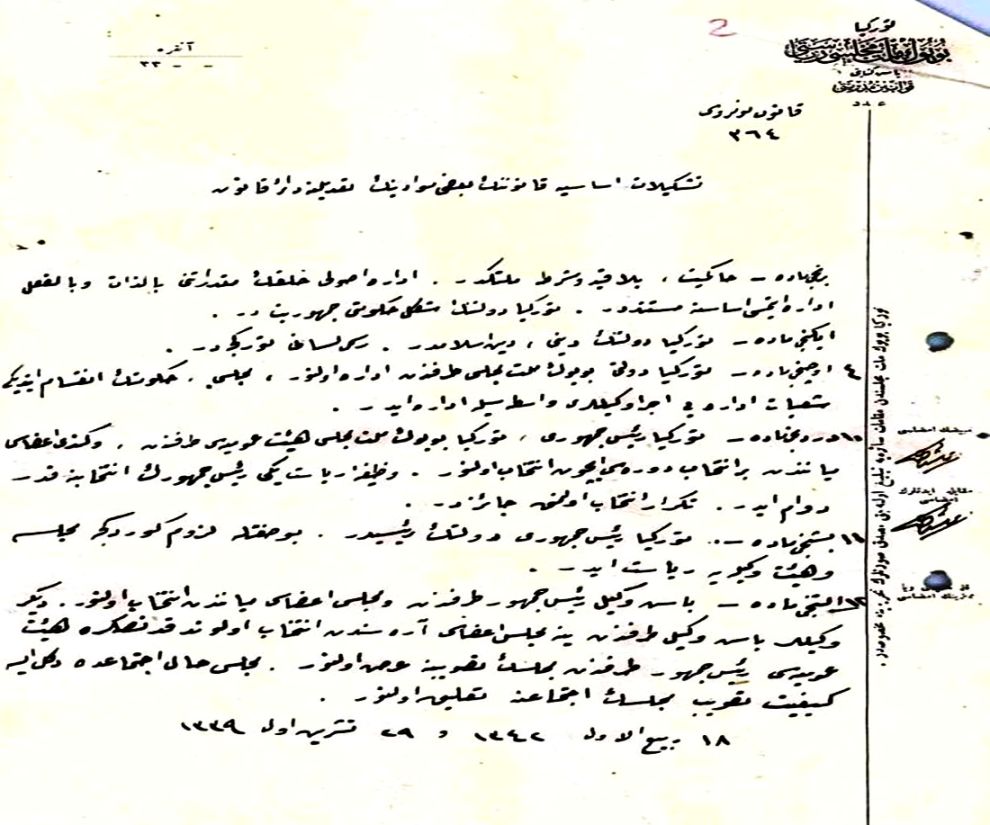 2
تورکیا
بویوك ملت مجلسی ریاستی
باش کتابتی
قوانین مدیریتی
عدد
آنقره
٣٣ - -
قانون نومروسی
٣٦٤
تشکیلات اساسیه قانوننك بعض موادینك تعدیلنه دائر قانون
برنجی ماده – حاکمیت ، بلا قید و شرط ملتكدر . اداره اصولی خلقك مقدراتنی بالذات وبالفعل
اداره ایتمسی اساسنه مستنددر . تورکیا دولتنك شکل حکومتی جمهوریت در .
ایکنجی ماده – تورکیا دولتنك دینی ، دین اسلامدر . رسمی لسانی تورکجه در .
٤ اوچنجی ماده – تورکیا دولتی بویوك ملت مجلسی طرفندن اداره اولنور ، مجلس ، حکومتك انقسام ایتدیکی
شعبات اداره یی اجرا وکیللری واسطه سیله اداره ایدر .
١٠ دردنجی ماده – تورکیا رئیس جمهوری ، تورکیا بویوك ملت مجلسی هیئت عمومیه سی طرفندن ، وکندی اعضاسی
میانندن بر انتخاب دوره سی ایچون انتخاب اولنور . وظیفه ریاست یکی رئیس جمهورك انتخابنه قدر
دوام ایدر . تکرار انتخاب اولنمق جائزدر .
١١ بشنجی ماده – تورکیا رئیس جمهوری دولتك رئیسیدر . بوصفتله لزوم کوردکجه مجلسه
وهیئت وکیله یه ریاست ایدر .
١٢ آلتنجی ماده – باش وکیل رئیس جمهور طرفندن ومجلس اعضاسی میانندن انتخاب اولنور . دیکر
وکیللر باش وکیل طرفندن ینه مجلس اعضاسی آره سندن انتخاب اولوندقدنصکره هیئت
عمومیه سی رئیس جمهور طرفندن مجلسك تصویبنه عرض اولنور . مجلس حال اجتماعده دکل ایسه
کیفیت تصویب مجلسك اجتماعنه تعلیق اولنور .
١٨ ربیع الاول ١٣٤٢ و ٢٩ تشرین اول ١٣٣٩
مبیضك امضاسی
مقابله ایدنلرك
امضاسی